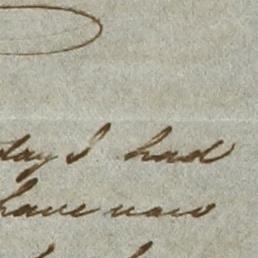 day I had
have now